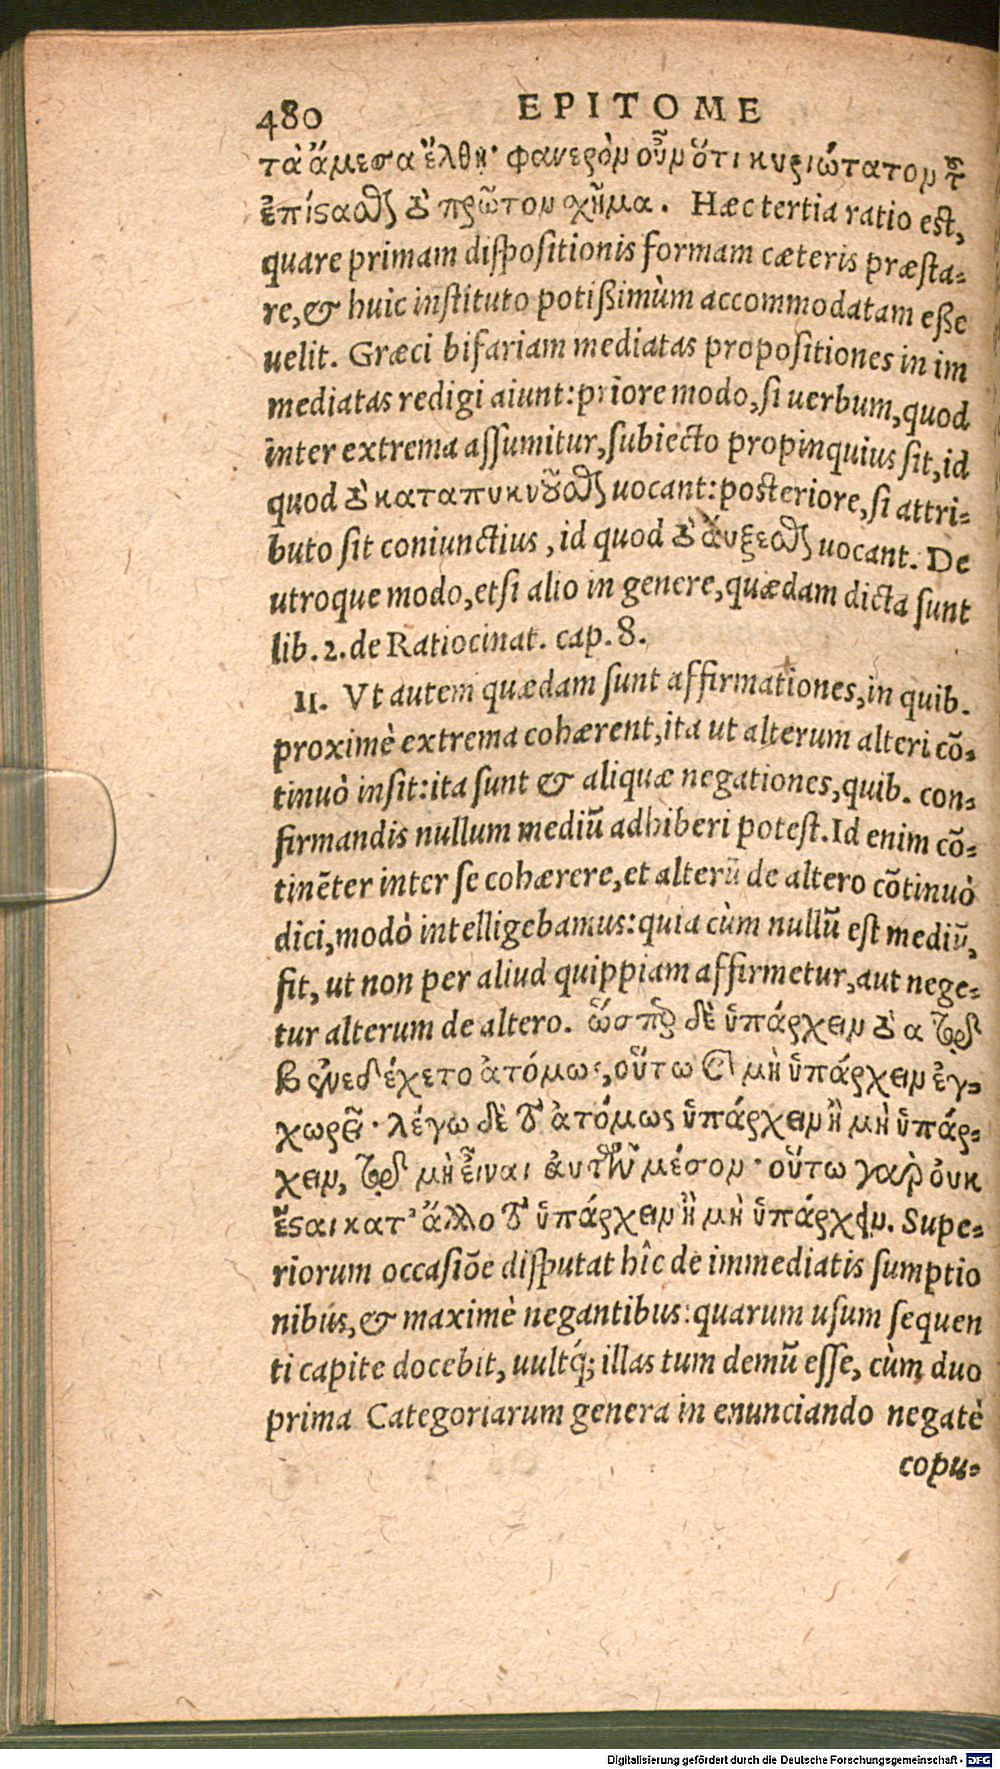 480 EPITOME
τὰ ἄμεσα ἔλθῃ· φανερὸν οὖν ὅτι κυριώτατον τ͂
ἐπίϛαϑαι τὸ πρῶτον χῆμα. Hæc tertia ratio est,
quare primam diſpoſitionis formam cæteris præſta-
re, & huic inſtituto potißimùm accommodatam eße
uelit. Græci bifariam mediatas propoſitiones in im
mediatas redigi aiunt: priore modo, ſi uerbum, quod
inter extrema aſſumitur, ſubiecto propinquius ſit, id
quod τὸ καταπυκνοῦϑαι uocant: poſteriore, ſi attri-
buto ſit coniunctius, id quod τὸ ἄυξεϑαι uocant. De
utroque modo, etſi alio in genere, quædam dicta ſunt
lib. 2. de Ratiocinat. cap. 8.
II. Vt autem quædam ſunt affirmationes, in quib.
proximè extrema cohærent, ita ut alterum alteri cõ-
tinuò inſit: ita ſunt & aliquæ negationes, quib. con-
firmandis nullum mediũ adhiberi poteſt. Id enim cõ-
tinẽter inter ſe cohærere, et alterũ de altero cõtinuò
dici, modò intelligebamus: quia cùm nullũ eſt mediũ,
fit, ut non per aliud quippiam affirmetur, aut nege-
tur alterum de altero. ὥσπερ δὲ ὑπάρχειν τὸ α τῷ
β ἐνεδέχετο ἀτόμως, οὕτω καὶ μὴ ὑπάρχειν ἐγ-
χωρεῖ· λέγω δὲ τὸ ἀτόμως ὑπάρχειν ἢ μὴ ὑπάρ-
χειν, τῷ μὴ εἶναι ἀυτῶν μέσον· οὕτω γὰρ ὀυκ
ἔϛαι κατ' ἄλλο τὸ ὑπάρχειν ἢ μὴ ὑπάρχειν. Supe-
riorum occaſiõe diſputat hîc de immediatis ſumptio
nibus, & maximè negantibus: quarum uſum ſequen
ti capite docebit, uultq́; illas tum demũ eſſe, cùm duo
prima Categoriarum genera in enunciando negatè
copu-
Digitalisierung gefördert durch die Deutsche Forschungsgemeinschaft - DFG